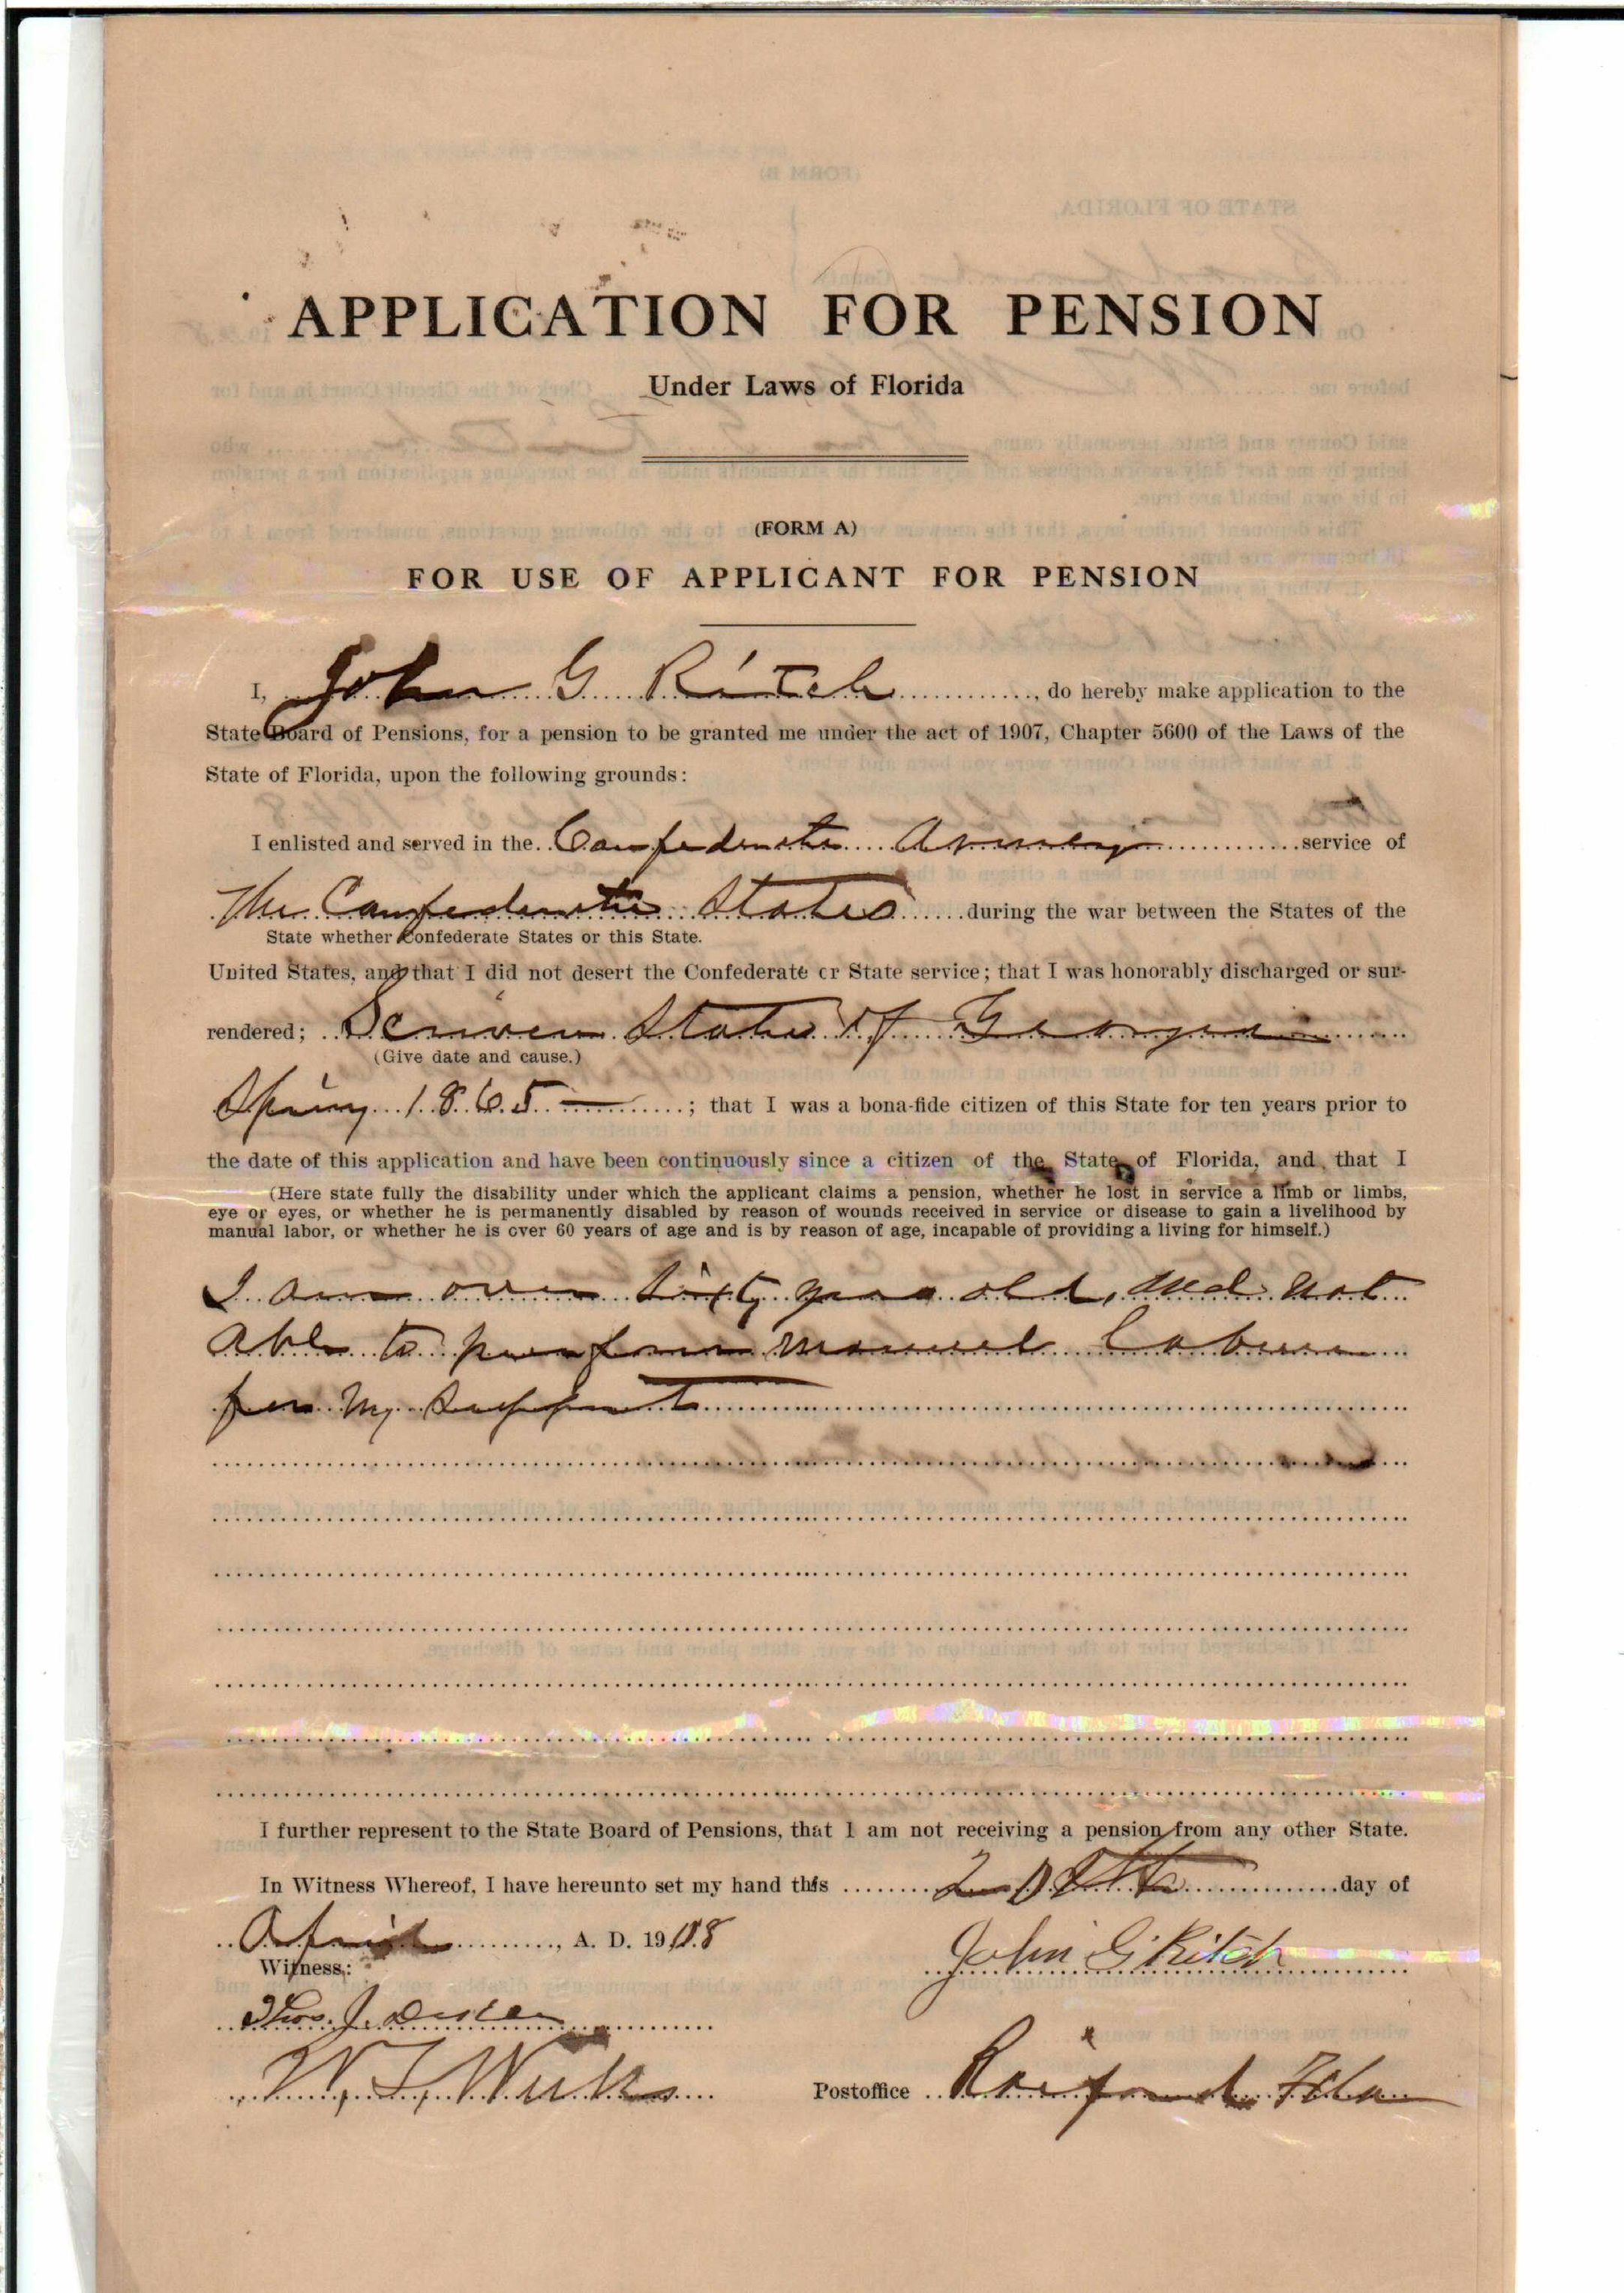 APPLICATION FOR PENSION
Under Laws of Florida
(FORM A)
FOR USE OF APPLICANT FOR PENSION
I, John G Ritch, do hereby make application to the
State Board of Pensions, for a pension to be granted me under the act of 1907, Chapter 5600 of the Laws of the
State of Florida, upon the following grounds:
I enlisted and served in the Confederate Army service of
The Confederate States during the war between the States of the
State whether Confederate States or this State.
United States, and that I did not desert the Confederate or State service; that I was honorably discharged or sur-
rendered; Scriven State of Georgia
(Give date and cause.)
Spring 1865 — ; that I was a bona-fide citizen of this State for ten years prior to
the date of this application and have been continuously since a citizen of the State of Florida, and that I
(Here state fully the disability under which the applicant claims a pension, whether he lost in service a limb or limbs,
eye or eyes, or whether he is permanently disabled by reason of wounds received in service or disease to gain a livelihood by
manual labor, or whether he is over 60 years of age and is by reason of age, incapable of providing a living for himself.)
I am over Sixty years old, and not
Able to perform manuel Labour
for My Support
I further represent to the State Board of Pensions, that I am not receiving a pension from any other State.
In Witness Whereof, I have hereunto set my hand this 20th day of
April, A. D. 1908
John G Ritch
Witness:
Thos. J.
W. T. Weeks
Postoffice Raiford Fla